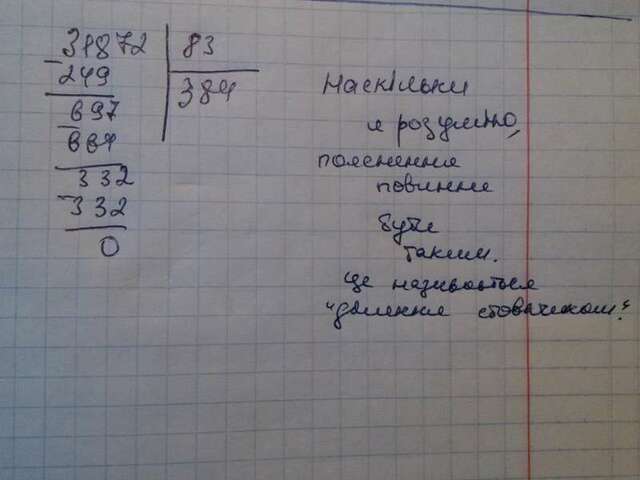 31872 83
- 249 384
697
- 664
332
- 332
0
Наскільки
я розумію,
пояснення
повинне
бути
таким.
Це називається
"ділення стовпчиком".